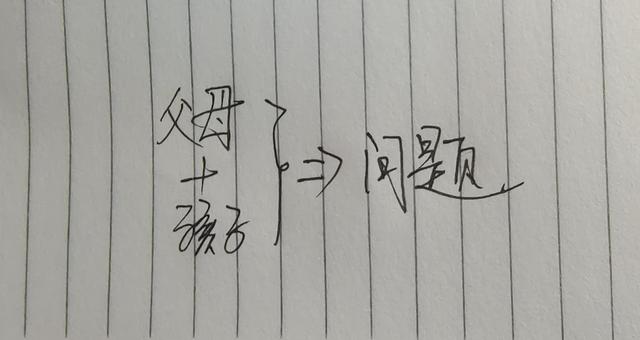 父母
+
孩子
} ⇒ 问题